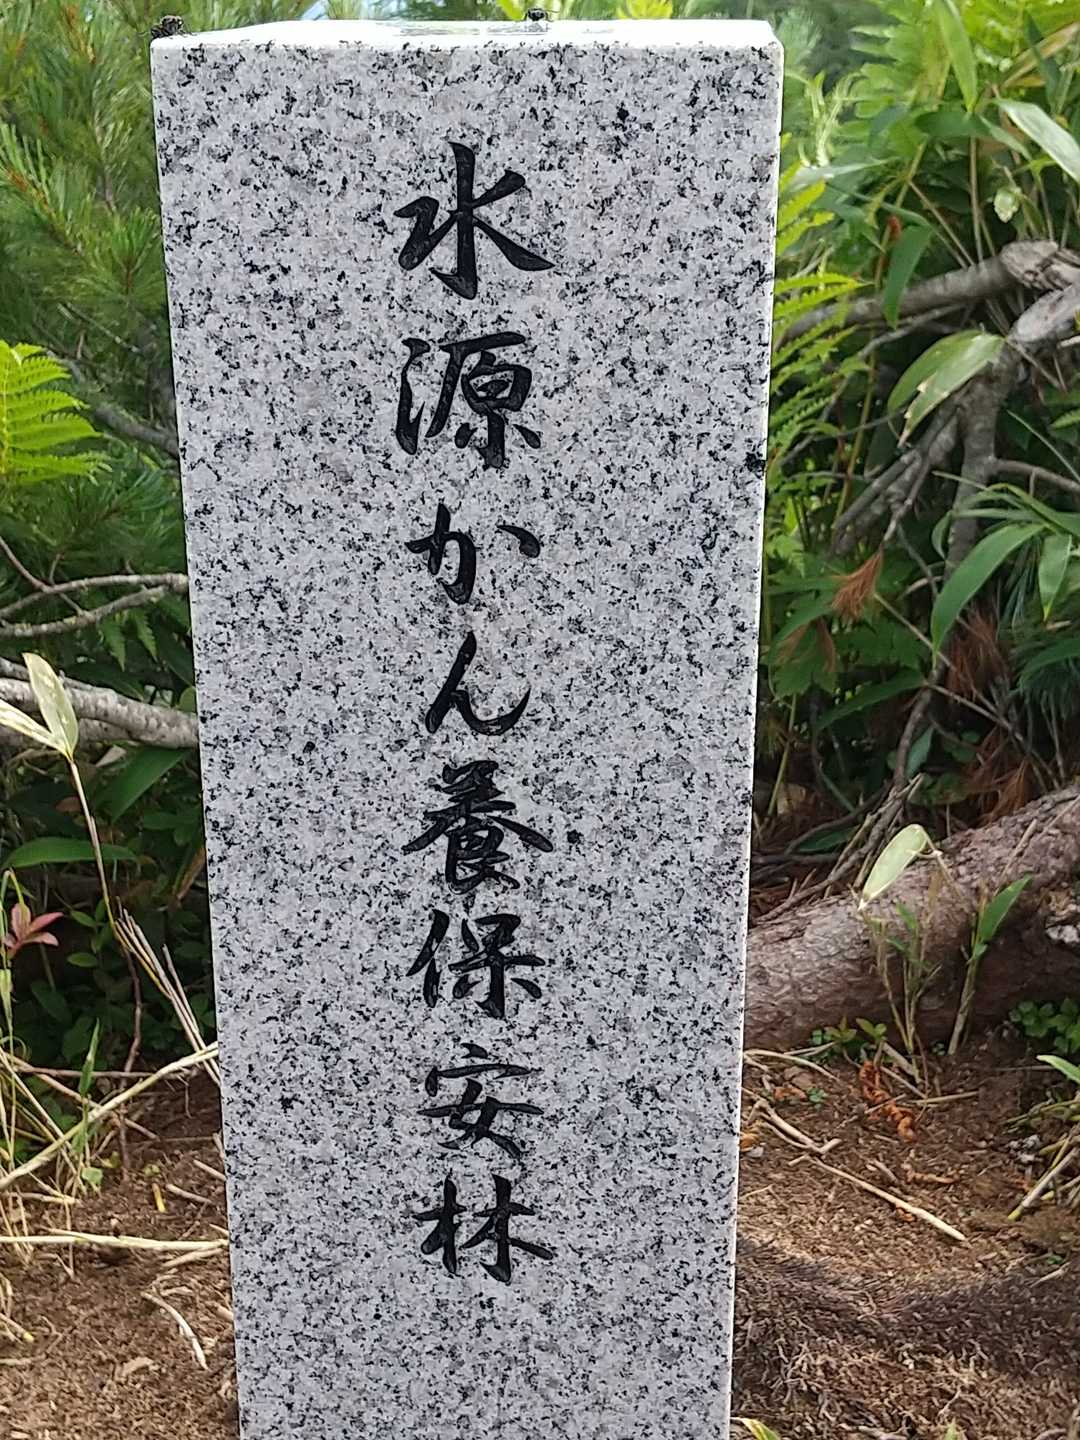 水源かん養保安林